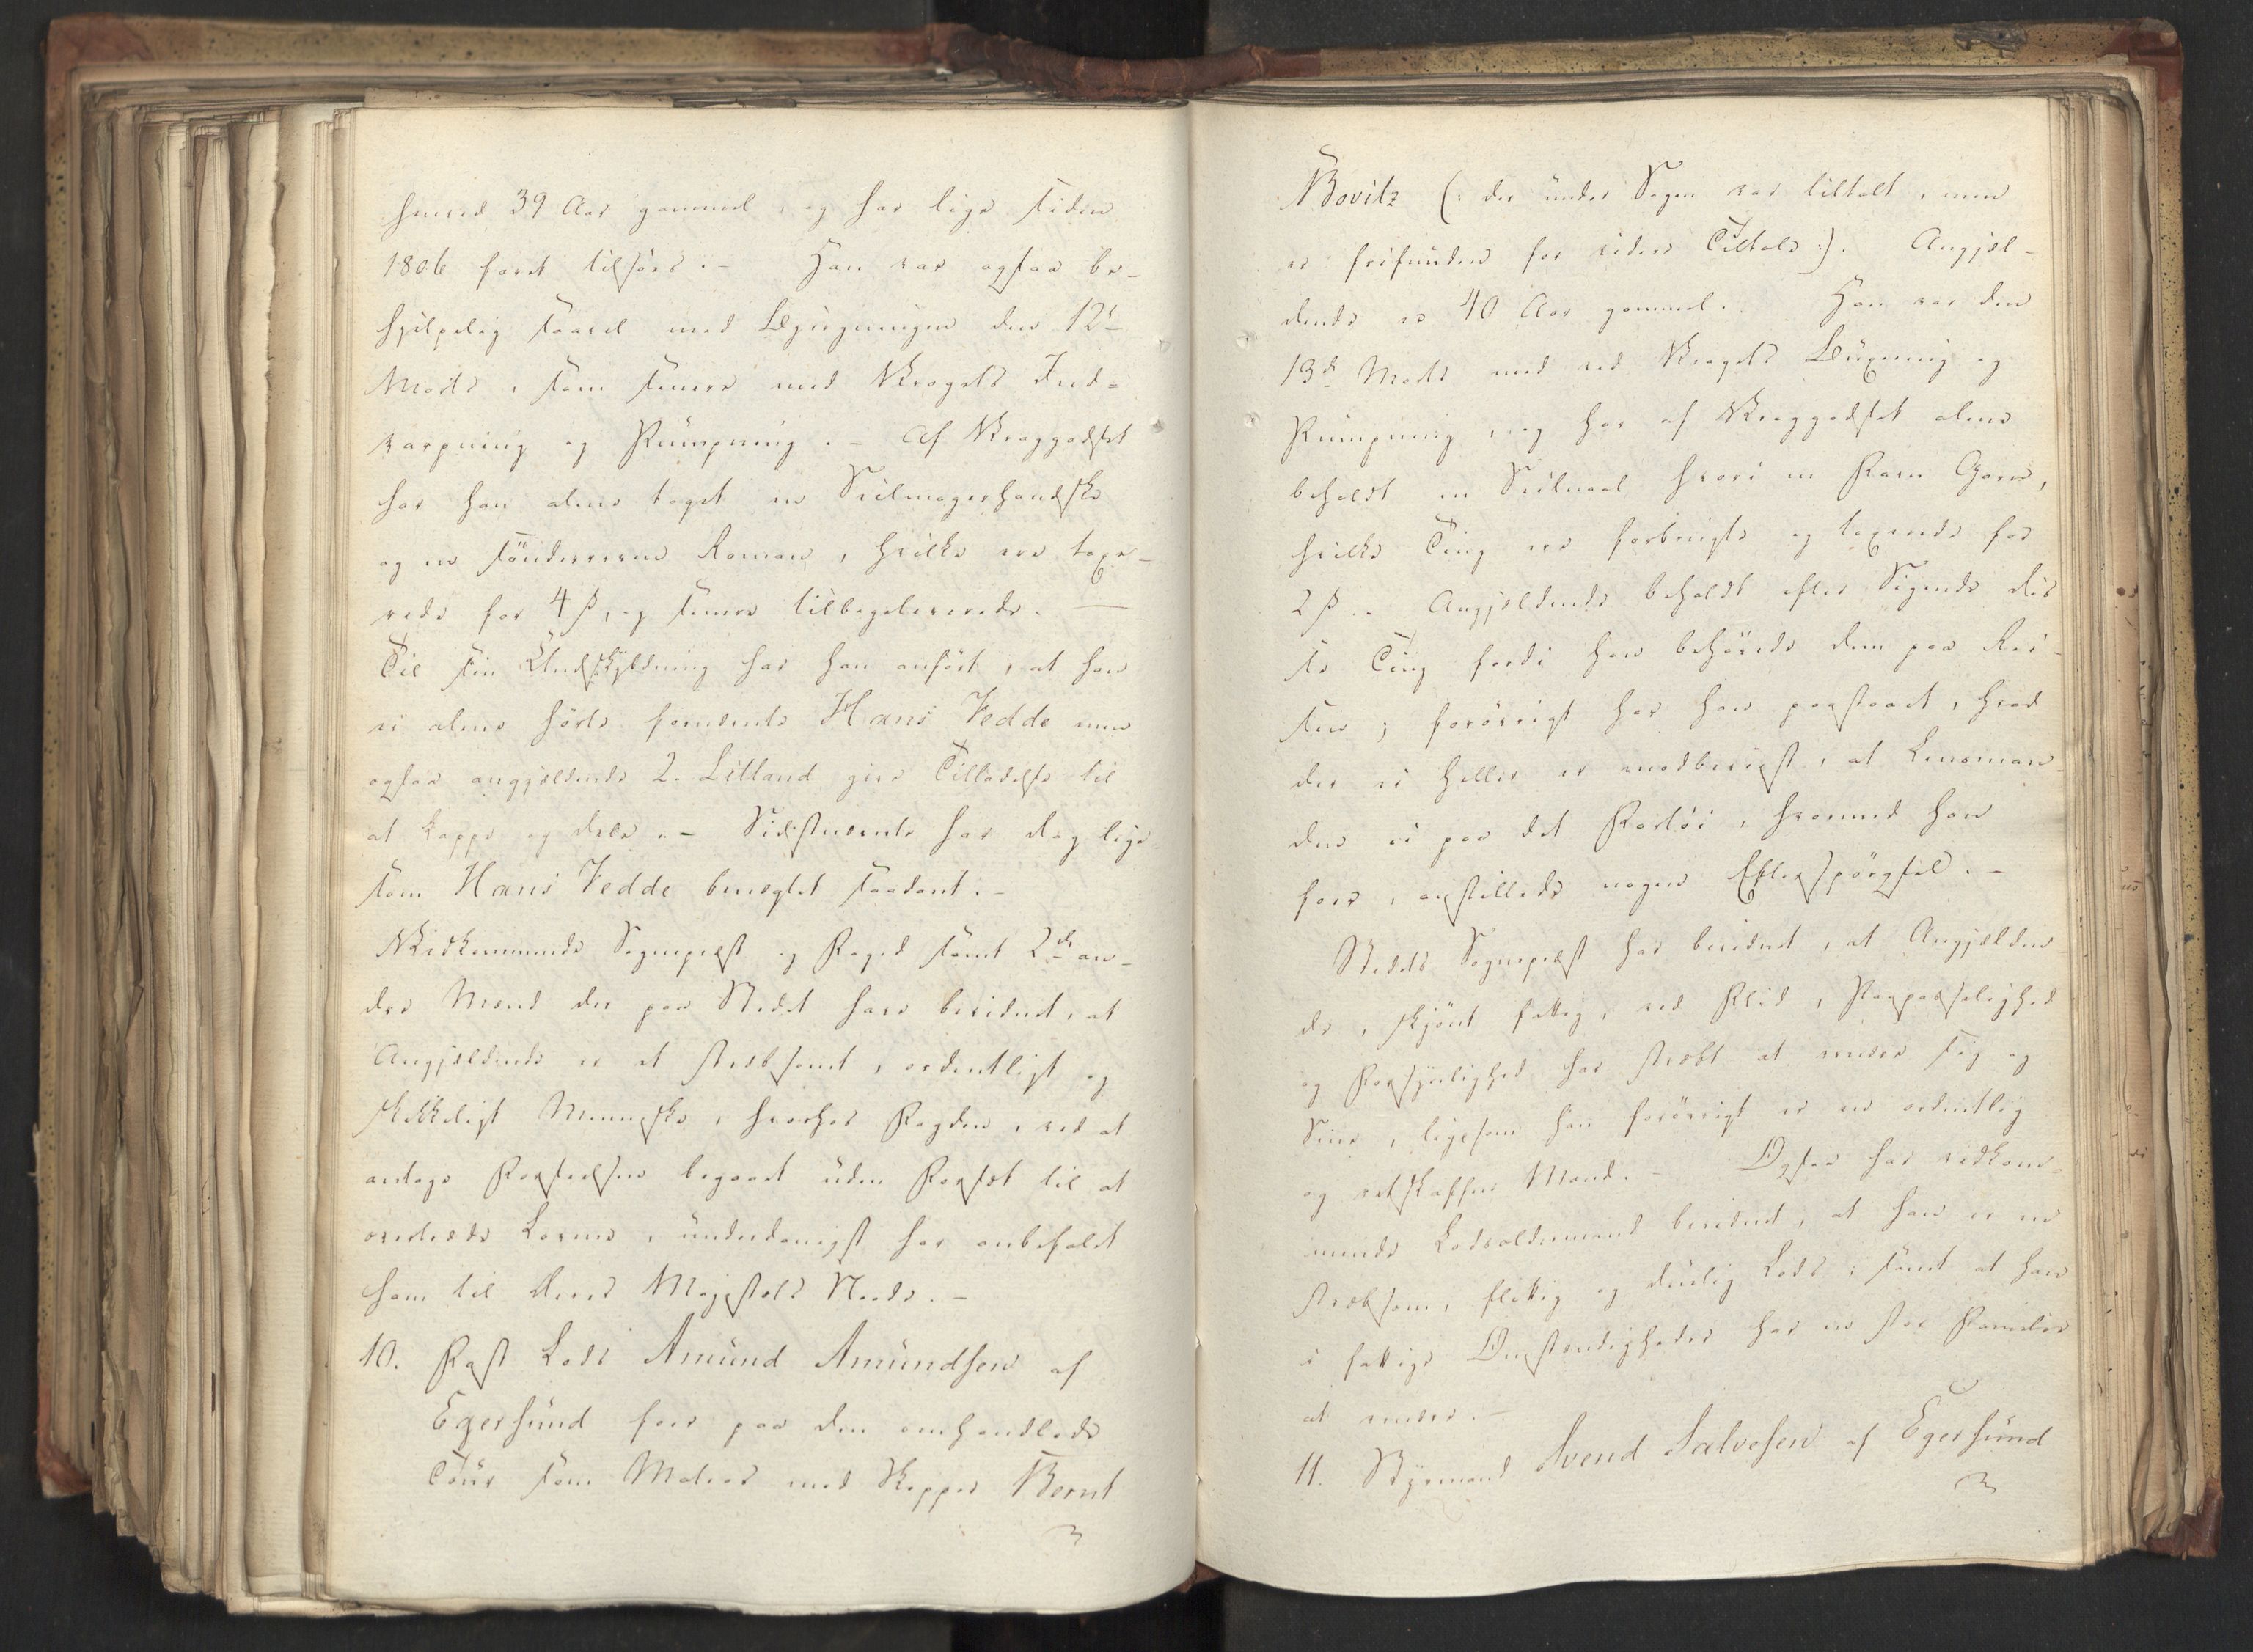 henved 39 Aar gammel, og har lige siden
1806 faret tilsøes. – Han var ogsaa be-
hjelpelig saavel med Bjergningen den 12te
Marts, som senere med Vragets Ind-
varpning og Pumpning. – Af Vraggodset
har han alene taget en Seilmagerhandske
og en sønderreven Roman, hvilke ere taxe-
rede for 4 s, og senere tilbageleverede. –
Til sin Undskyldning har han anført, at han
ei alene hørte fornævnte Hans Vedde men
ogsaa angjældende L. Litland give Tilladelse til
at kappe og dele. – Sidstnævnte har dog lige-
som Hans Vedde benegtet saadant. –
Vedkommende Sognepræst og Foged samt 2de an-
dre Mænd der paa Stedet have bevidnet, at
Angjældende er et stræbsomt, ordentligt og
skikkeligt Menneske, hvorhos Fogden, ved at
antage Forseelsen begaaet uden Forsæt til at
overtræde Lovene, underdanigst har anbefalet
ham til Deres Majestæts Naade. –
10. Fast Lods Amund Amundsen af
Egersund foer paa den omhandlede
Tour som Matros med Skipper Bernt
Bovitz (: der under Sagen var tiltalt, men
er frifunden for videre Tiltale :). Angjæl-
dende er 40 Aar gammel. Han var den
13de Marts med ved Vragets Bugsering og
Pumpning, og har af Vraggodset alene
beholdt en Seilnaal hvori en Favn Garn,
hvilke Ting ere forbrugte og taxerede for
2 s. – Angjældende beholdt efter Sigende dis-
se Ting fordi han behøvede dem paa Rei-
sen; forøvrigt har han paastaaet, hvad
der ei heller er modbeviist, at Lensman-
den ei paa det Fartøi, hvormed han
foer, anstillede nogen Efterspørgsel. –
Stedets Sognepræst har bevidnet, at Angjælden-
de, skjønt fattig, ved Flid, Sparsommelighed
og Forsynlighed har stræbt at ernære sig og
Sine, ligesom han forøvrigt er en ordentlig
og retskaffen Mand. – Ogsaa har vedkom-
mende Lodsoldermand bevidnet, at han er en
stræbsom, flittig og duelig Lods; samt at han
i fattige Omstændigheder har en stor Familie
at ernære. –
11. Styrmand Svend Salvesen af Egersund